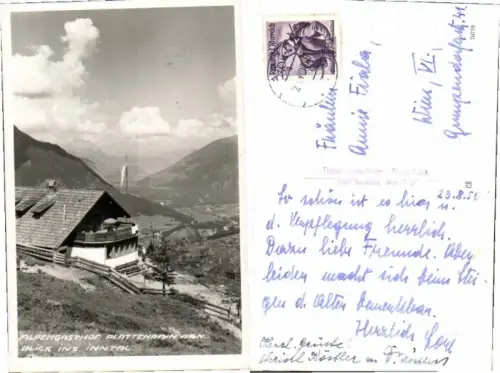 ALPENGASTHOF PLATTENRAIN
BLICK INS INNTAL
Fräulein
Anna Fiala,
Wien, VI.
Gumpendorferstr. 41
23.8.51
So schön ist es hier u.
d. Verpflegung herrlich.
Dazu liebe Freunde. Aber
leider macht sich beim Stei-
gen d. Alter bemerkbar.
Herzlich
Herzl. Grüße